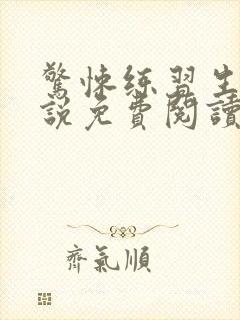 驚悚練習生
說免費閱讀
齊氣順